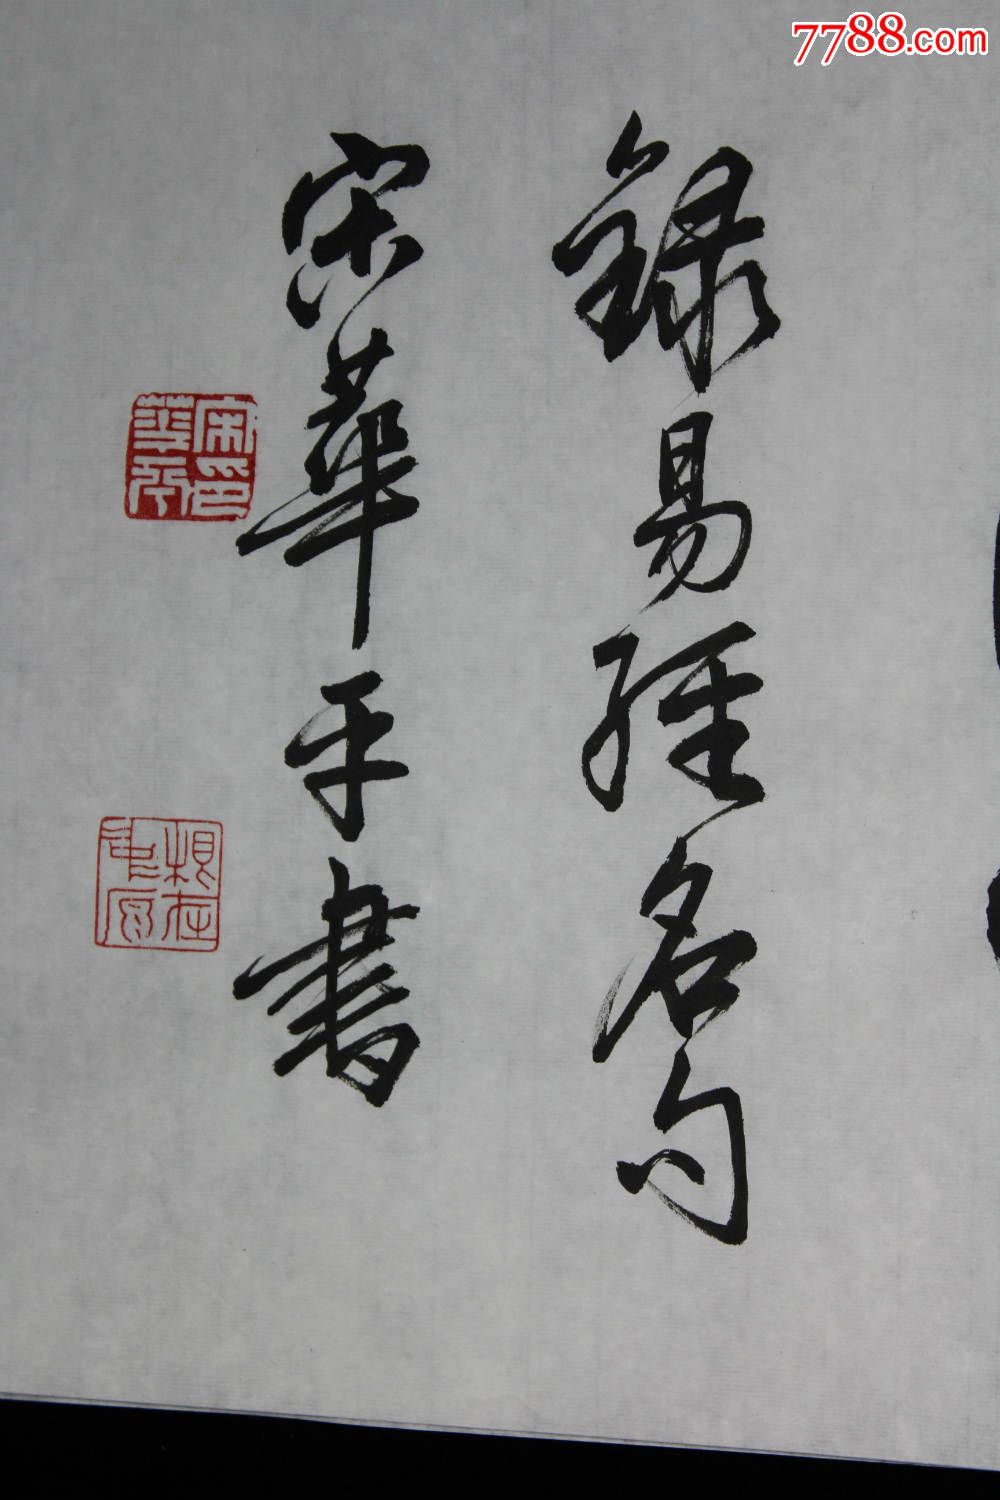 7788.com
錄易經名句
宋華平書
宋華平印